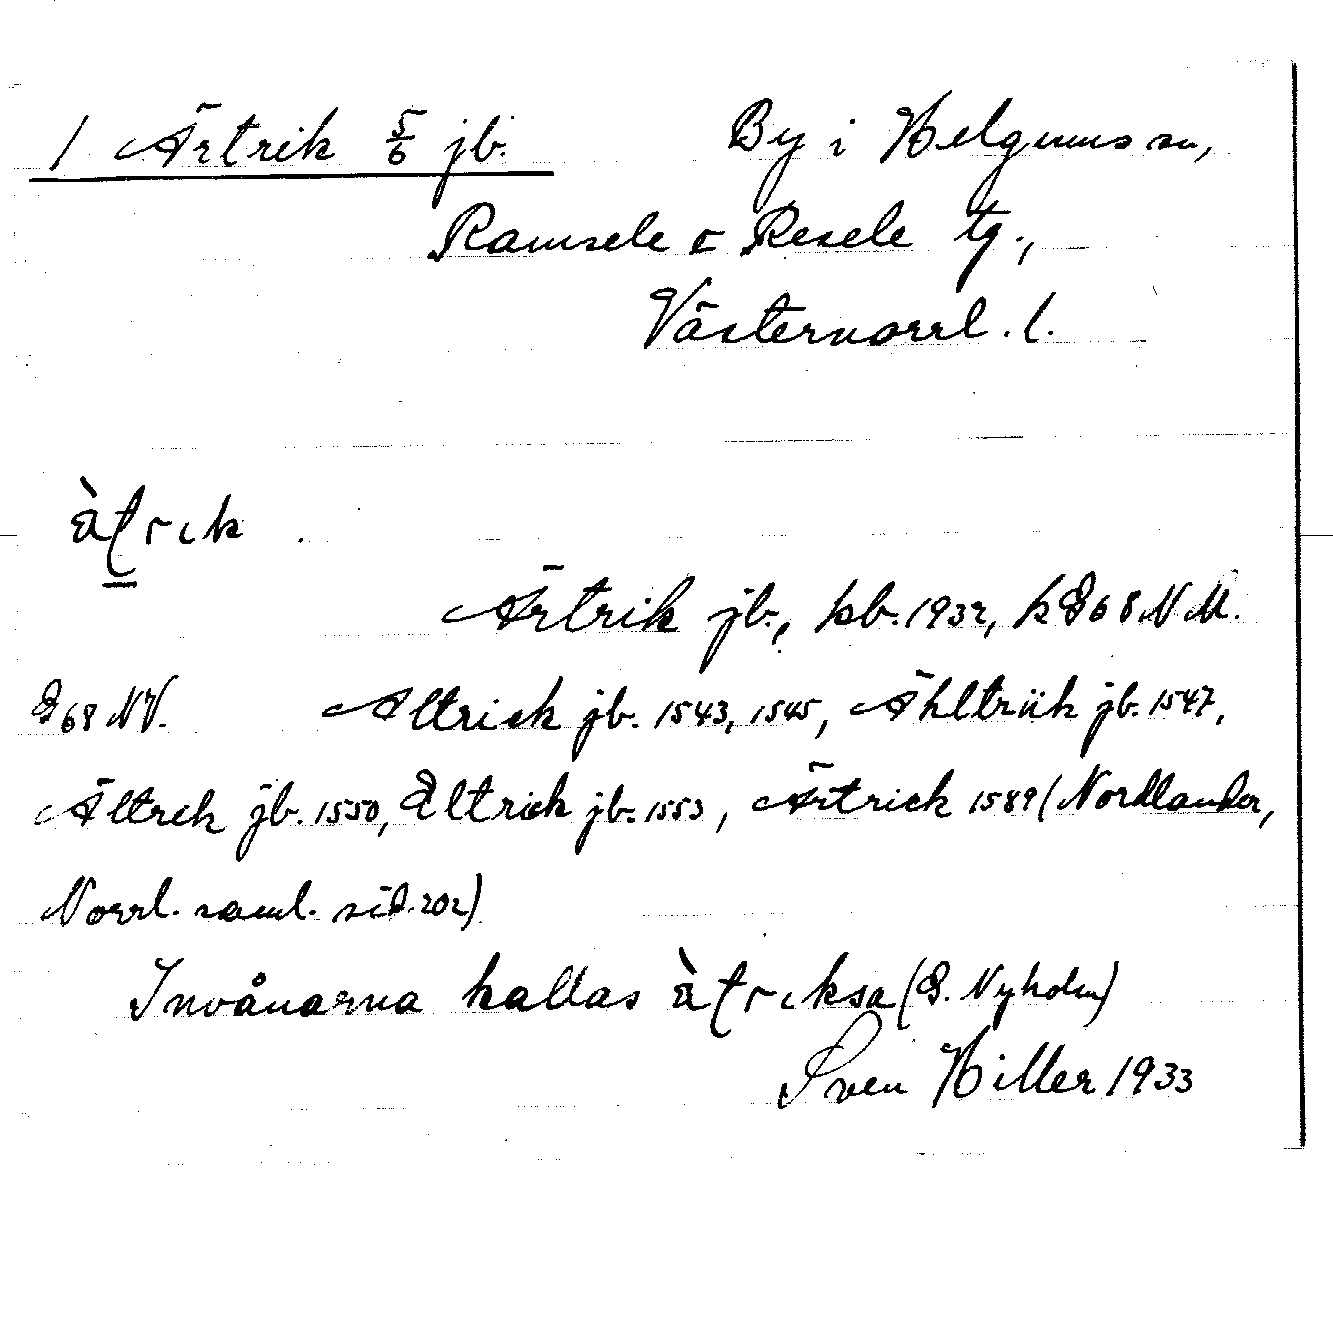 1 Ärtrik 5/6 jb. By i Helgums sn,
Ramsele o Resele tg.,
Västernorrl. l.
ätrik
Ärtrik jb., kb. 1932, k E68 NM.
E68 NV. Altrick jb. 1543, 1545, Ähltriik jb. 1547,
Ältrek jb. 1550, Eltrick jb. 1553, Ärtrick 1589 (Nordlander,
Norrl. saml. sid. 202)
Invånarna kallas ätriksa (E. Nyholm)
Sven Hiller 1933